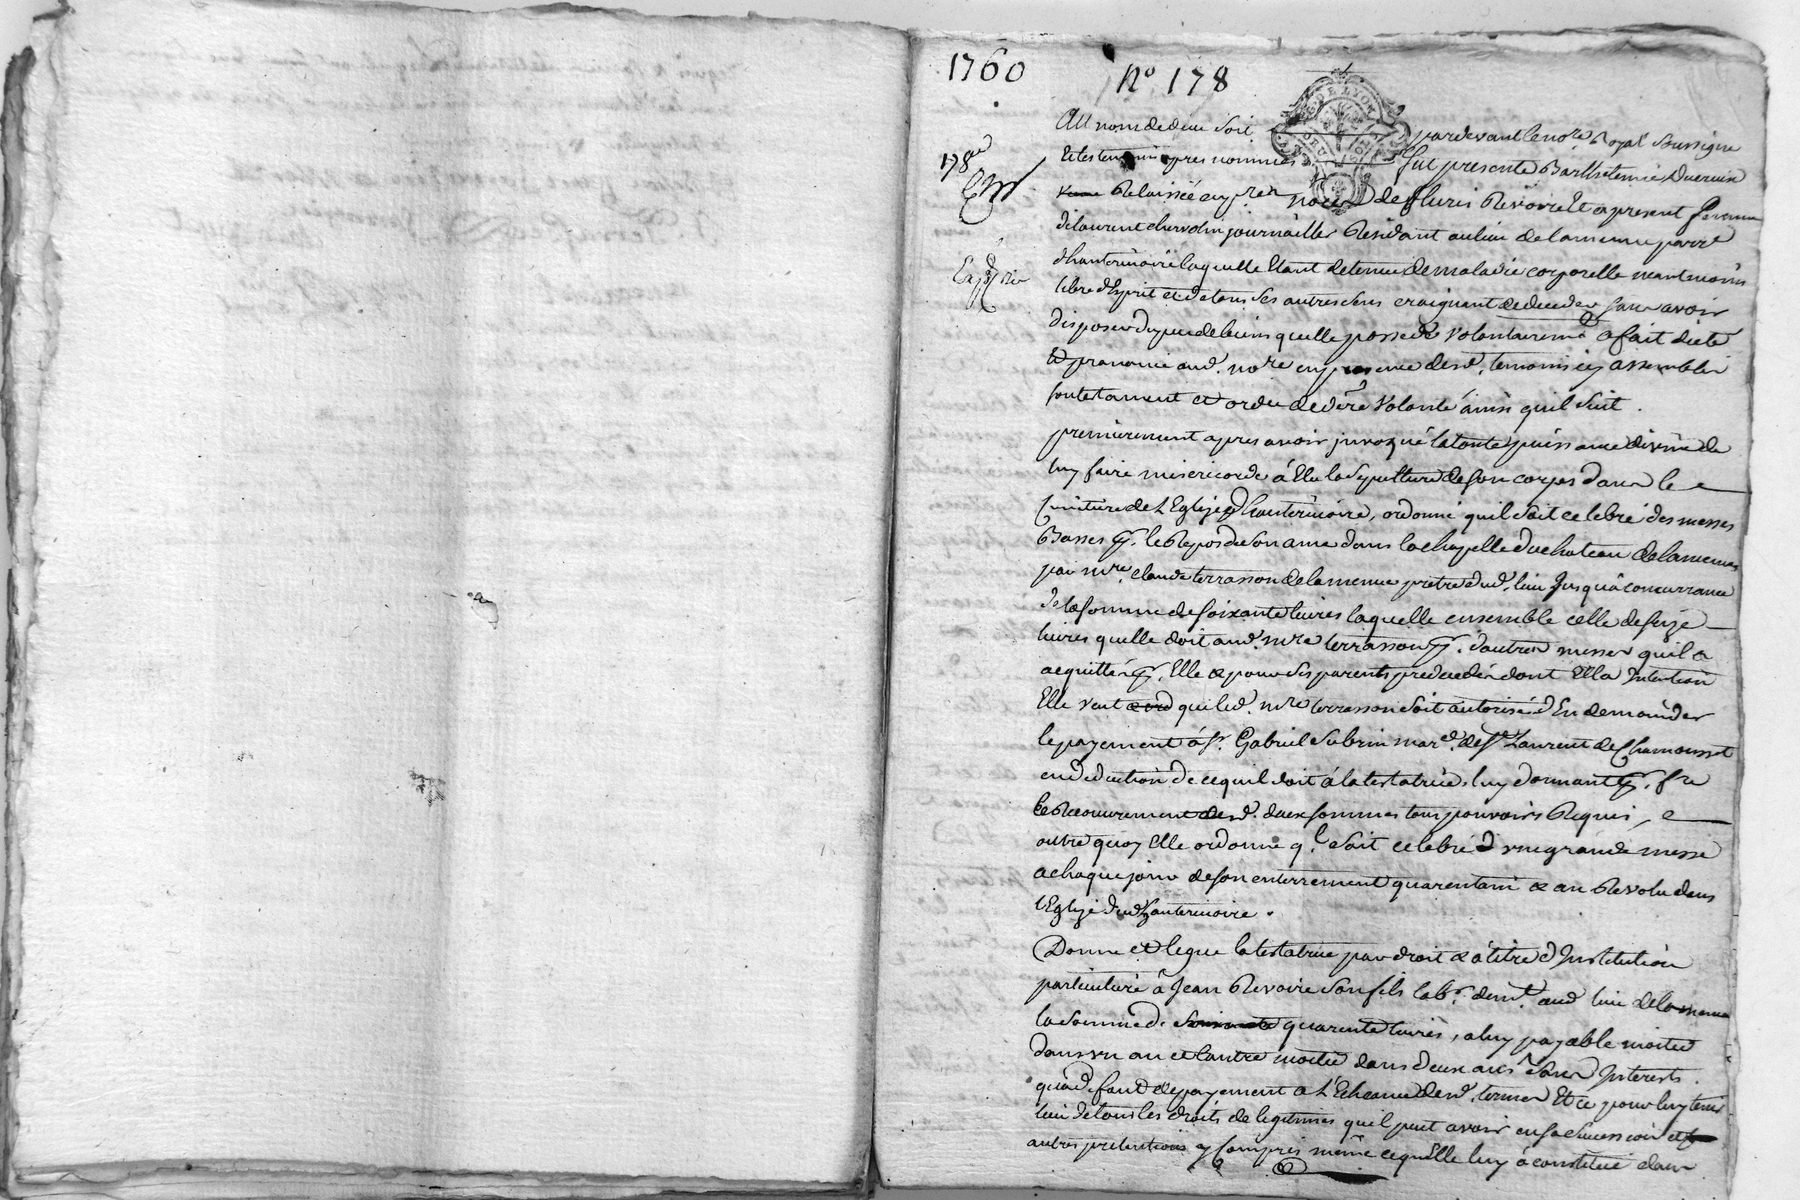 1760
n.º 178
178e
Expédiée
Au nom de dieu soit pardevant le no.re Royal soussigné
Et les temoins apres nommés fut presente Barthelemie Ducruix
Relaissée en p.res noces de fleuris Revoire Et apresent femme
de laurent chervolin journaillier Residant au lieu de lamenue parr.e
dhauterivoire laquelle Etant detenue de maladie corporelle neantmoins
libre d'Esprit et de tous ses autres sens craignant de deceder sans avoir
disposer du peu de biens quelle possede volontairem.t a fait dicté
Et prononcé aud. no.re en presence desd. temoins icy assemblés
son testament et ordre de der.e volonté ainsi quil suit .
premierement apres avoir invoqué la toute puissance divine de
luy faire misericorde à Elu la sepulture de son corps dans le
cimitiere de L'Eglise d'hauterivoire, ordonne quil soit celebré des messes
Basses p.r le Repos de son ame dans la chapelle du chateau de lamenue
par m.re claude terrasson de lamenue prêtre dud. lieu jusqu'à concurrance
de la somme de soixante livres laquelle ensemble celle de seize
livres quelle doit aud. m.re terrasson p.r d'autres messes quil a
acquittés p.r Elle & pour ses parents predecedés dont Ella Intention
Elle veut que led. m.re terrasson soit autorisé d'En demander
le payement à s.r Gabriel subrin mar.d de s.t Laurent de Chamousset
en deduction de ce quil doit à la testatrice, luy donnant p.r f.re
le Recouvrement desd. deux sommes tous pouvoirs Requis,
outre quoy Elle ordonne q.l soit celebré une grande messe
a chaque jour de son enterrement quarentain & an Revolu dans
l'Eglise dud. hauterivoire .
Donne et legue la testatrice par droit & à titre d'Institution
particuliere à Jean Revoire son fils lab.r dem.t aud. lieu de lamenue
la somme de quarente livres, a luy payable moitié
dans un an et l'autre moitié dans deux ans sans Interests
qu'a defaut de payement a L'Echeance desd. termes Et ce pour luy tenir
lieu de tous les droits de legitimes quil peut avoir en sa succession
autres pretentions y Compris même ce quelle luy à constitué dans